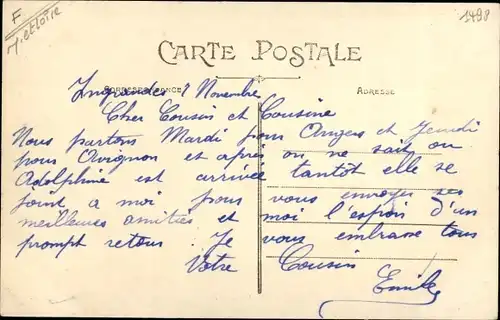 F
M. et Loire
1498
CARTE POSTALE
CORRESPONDANCE
ADRESSE
Ingrandes 8 Novembre
Cher Cousin et Cousine
Nous partons Mardi pour Angers et Jeudi
pour Avignon et après on ne sait ou
Adolphine est arrivée tantôt elle se
joint a moi pour vous envoyer ses
meilleures amitiés et moi l'espoir d'un
prompt retour. Je vous embrasse tous
Votre Cousin
Emile